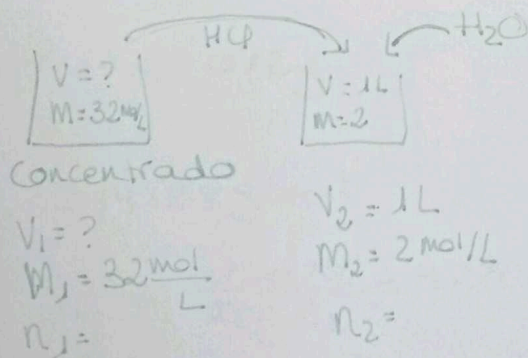 HCl
H₂O
V = ?
M = 32 mol/L
V = 1L
M = 2
Concentrado
V₁ = ?
M₁ = 32 mol/L
n₁ =
V₂ = 1L
M₂ = 2 mol/L
n₂ =